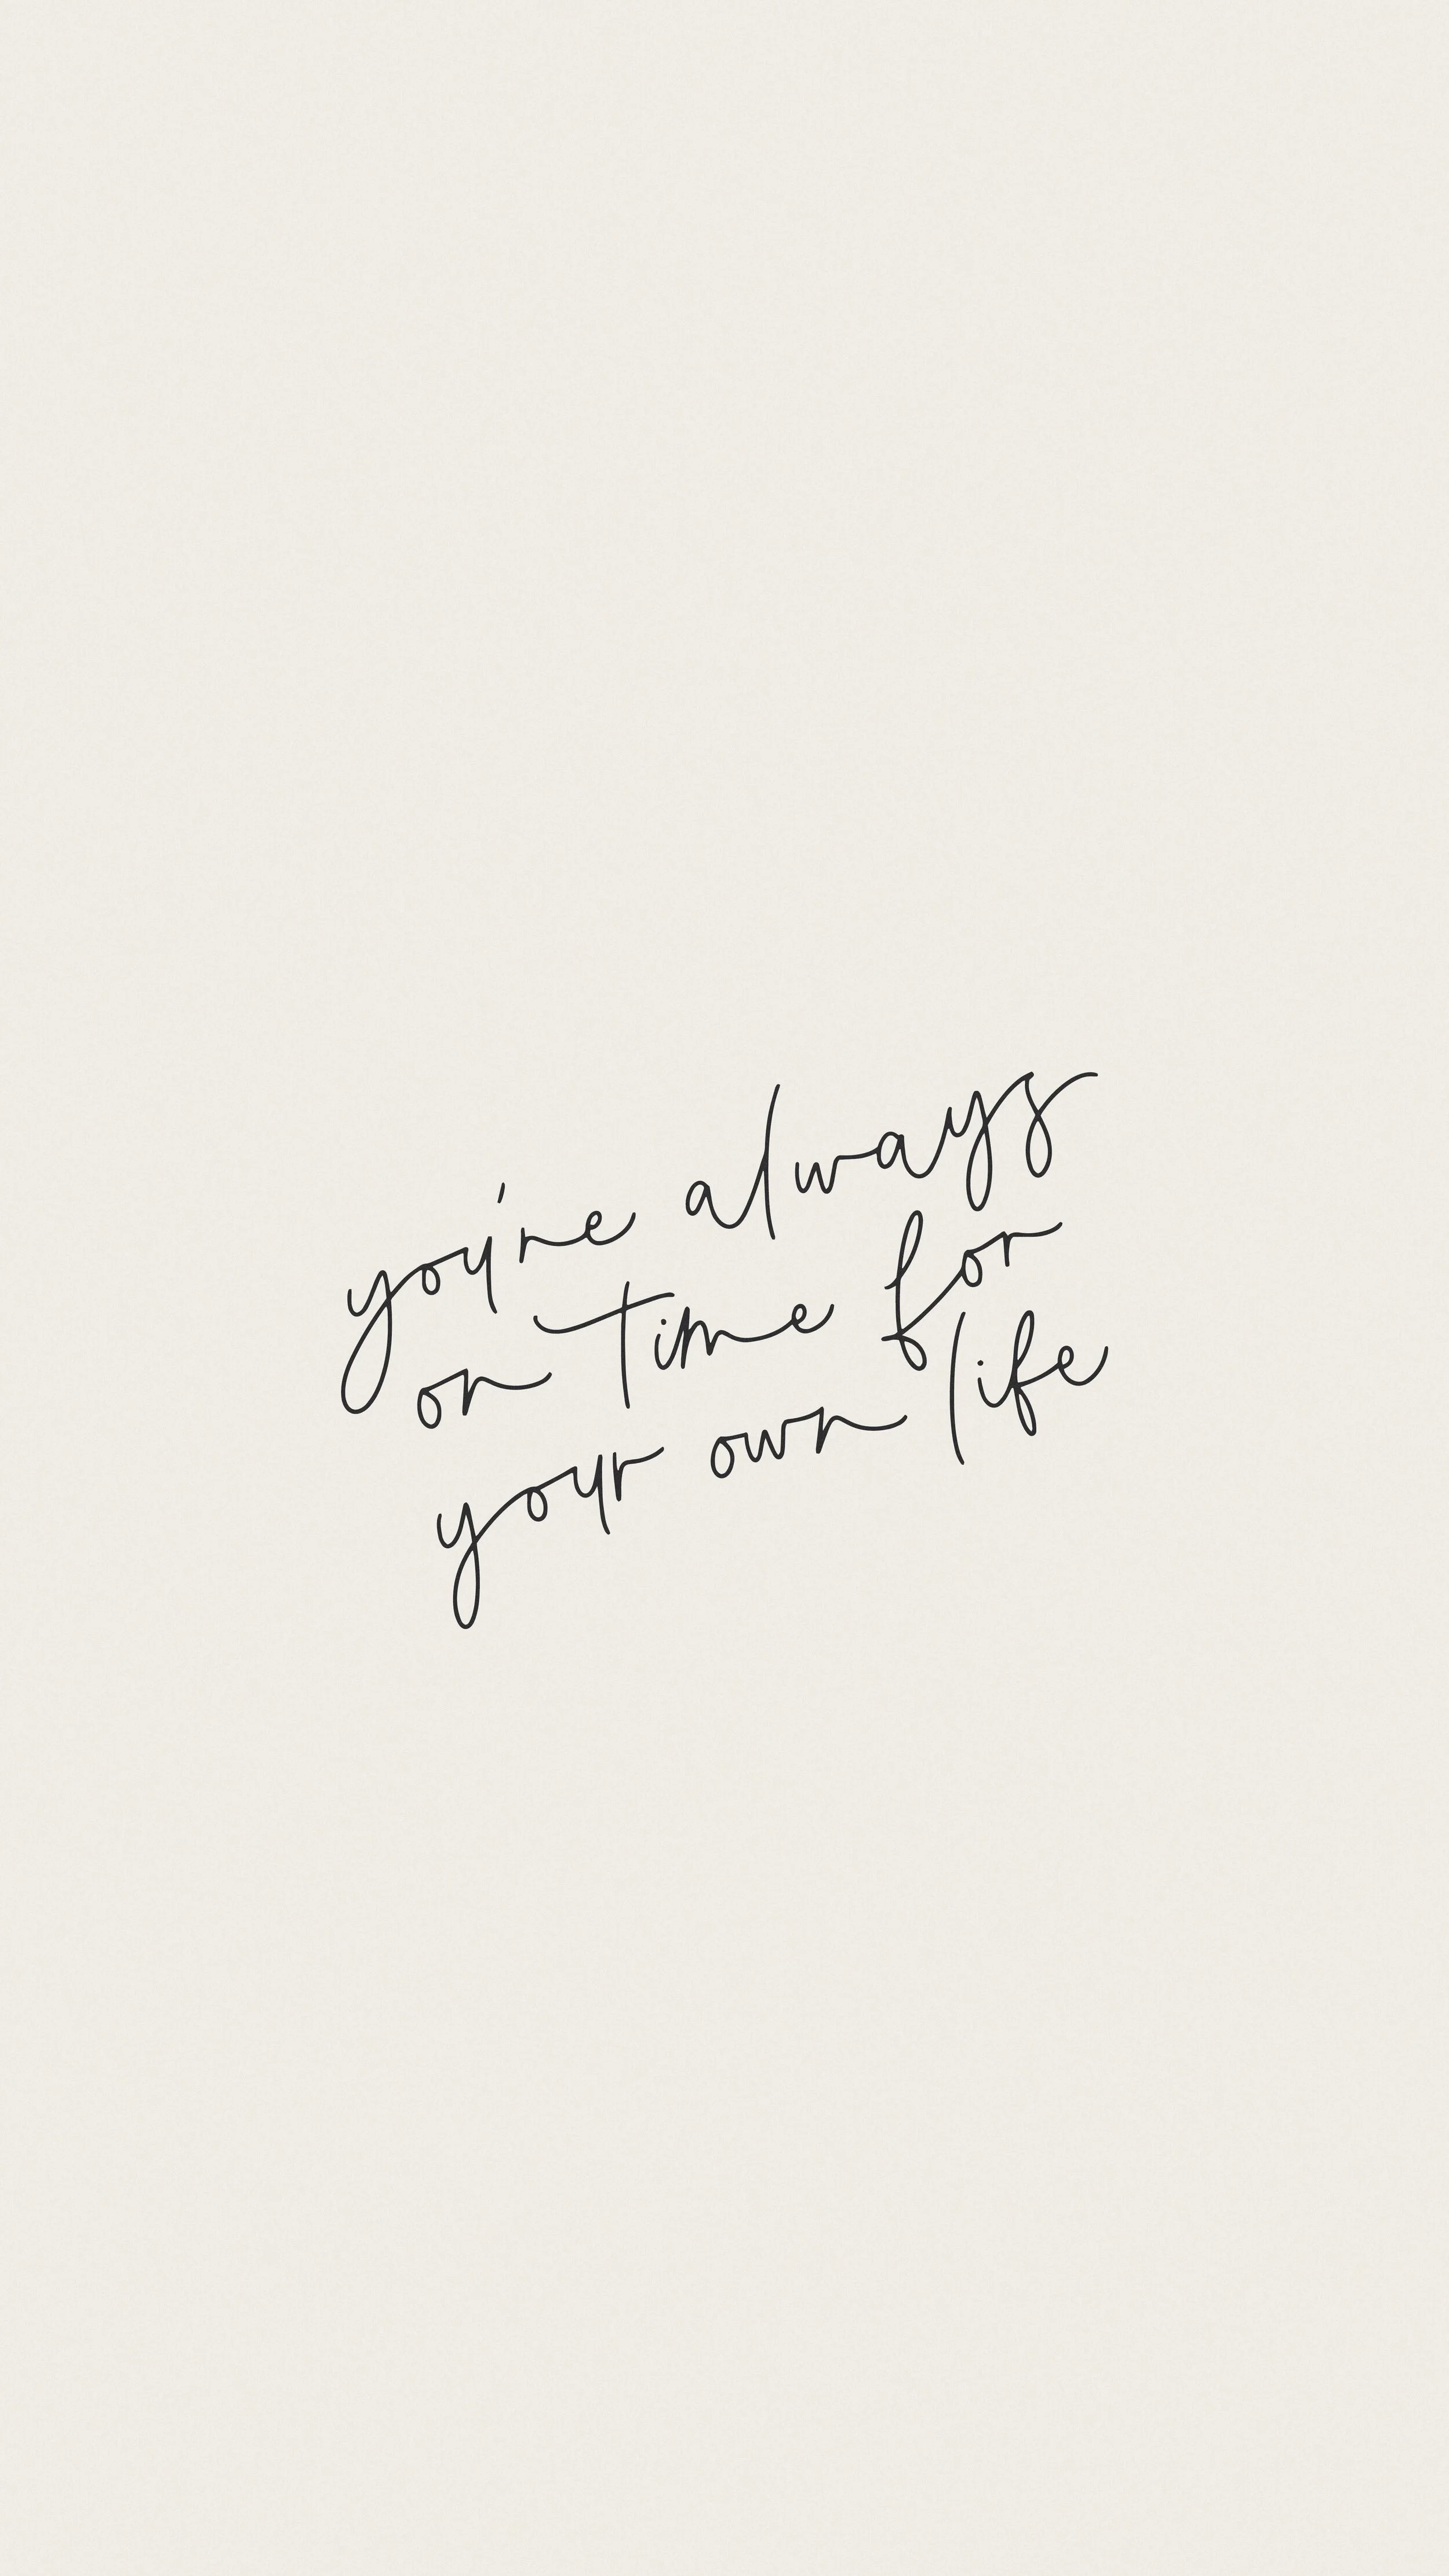 you're always
on time for
your own life